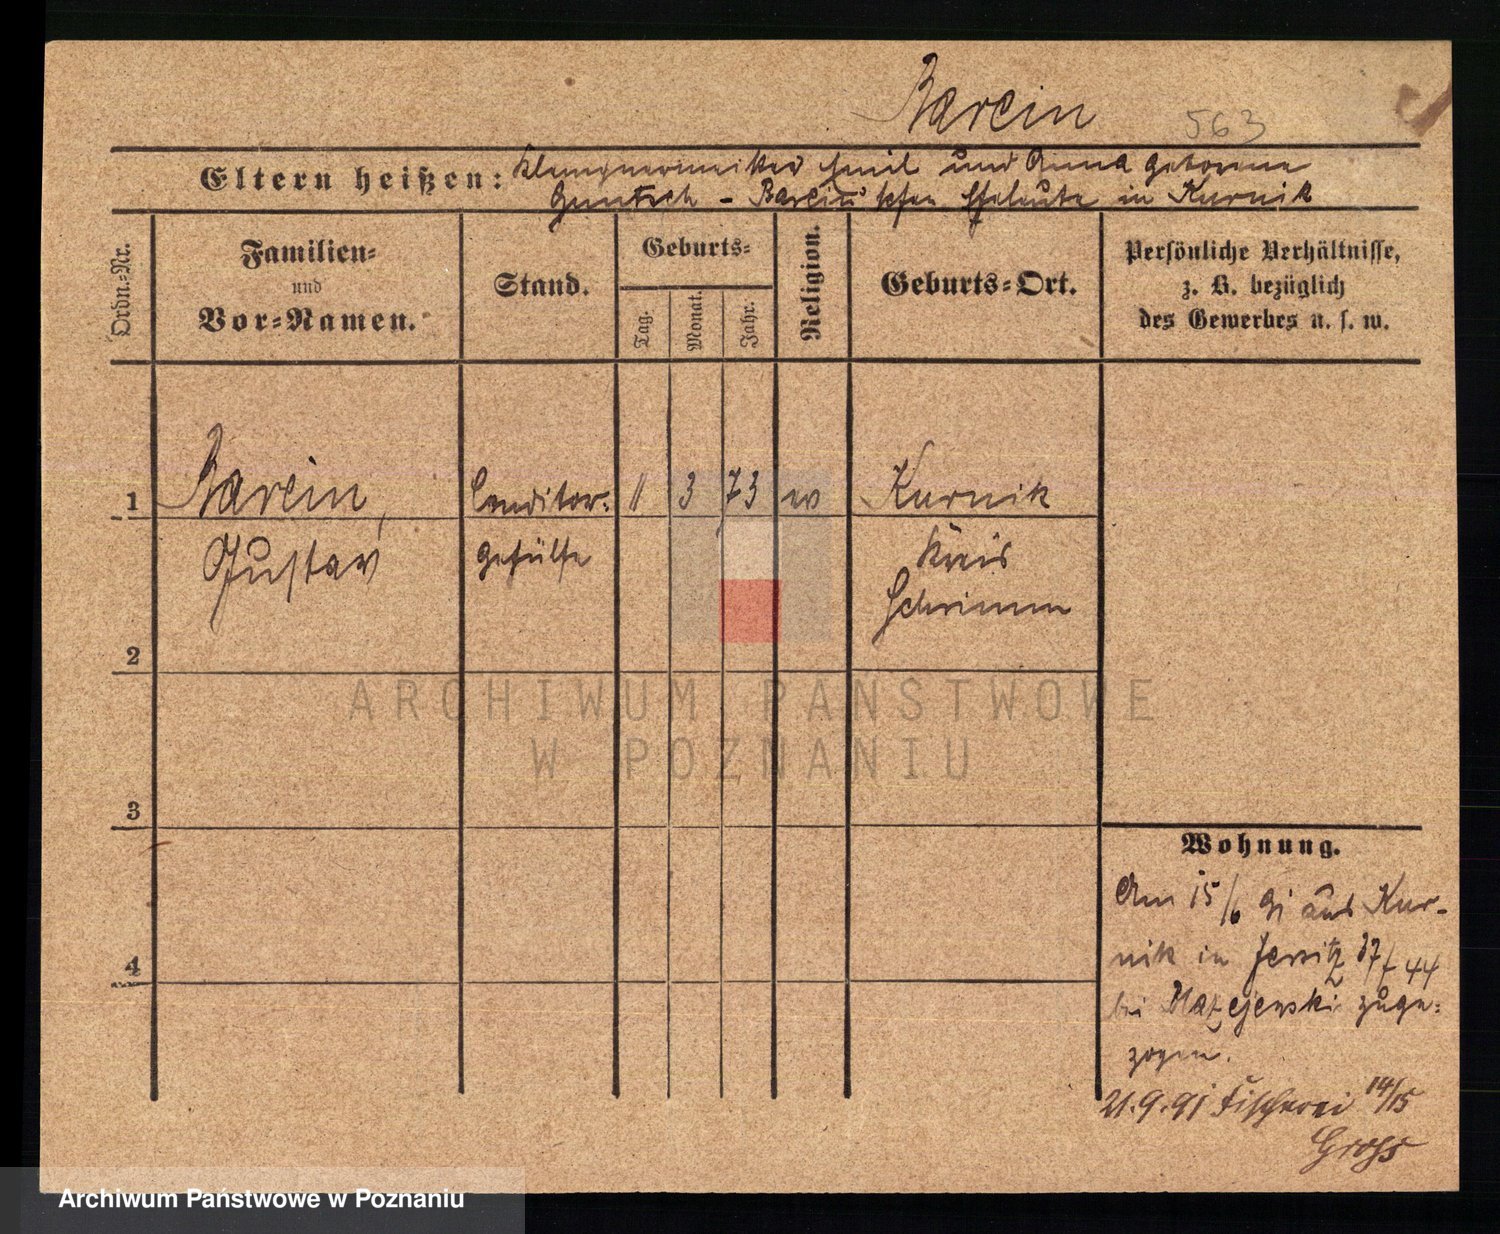 Barcin
563
Eltern heißen: Klempnermeister Emil und Anna geborene
Gentsch - Barcin'schen Eheleute in Kurnik
Ordn.-Nr.
Familien-
und
Vor-Namen.
Stand.
Geburts-
Tag.
Monat.
Jahr.
Religion.
Geburts-Ort.
Persönliche Verhältnisse,
z. B. bezüglich
des Gewerbes u. s. w.
1 Barcin, Conditor- 11 3 73 ev Kurnik
Gustav gehülfe Kreis
Schrimm
2
3
4
Wohnung.
Am 15/6 91 aus Kur-
nik in Jersitz 37/44
bei Matejewski zuge-
zogen.
21.9.91 Fischerei 14/15
Gross
ARCHIWUM PAŃSTWOWE
W POZNANIU
Archiwum Państwowe w Poznaniu